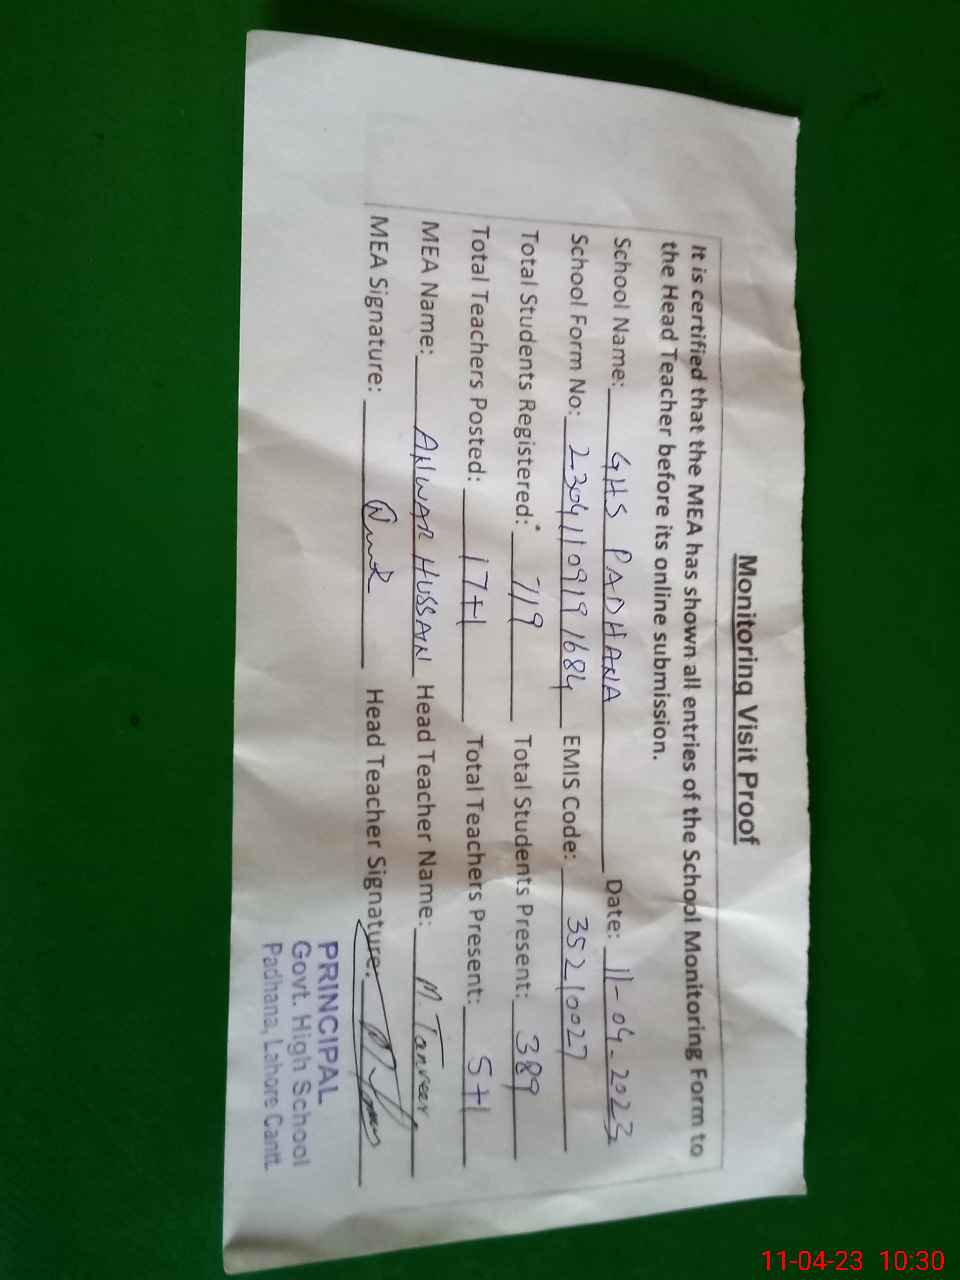 Monitoring Visit Proof
It is certified that the MEA has shown all entries of the School Monitoring Form to
the Head Teacher before its online submission.
School Name: GHS PADHANA Date: 11-04-2023
School Form No: 23041109191684 EMIS Code: 35210027
Total Students Registered: 719 Total Students Present: 389
Total Teachers Posted: 17+1 Total Teachers Present: 5+1
MEA Name: ANWAR HUSSAIN Head Teacher Name: M. Tanveer
MEA Signature: Head Teacher Signature:
PRINCIPAL
Govt. High School
Padhana, Lahore Cantt.
11-04-23 10:30